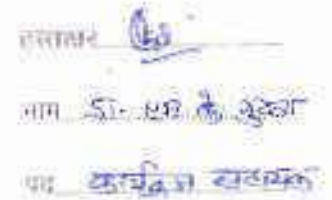 हस्ताक्षर
नाम डा- एस के शुक्ला
पद कार्यक्रम सहायक